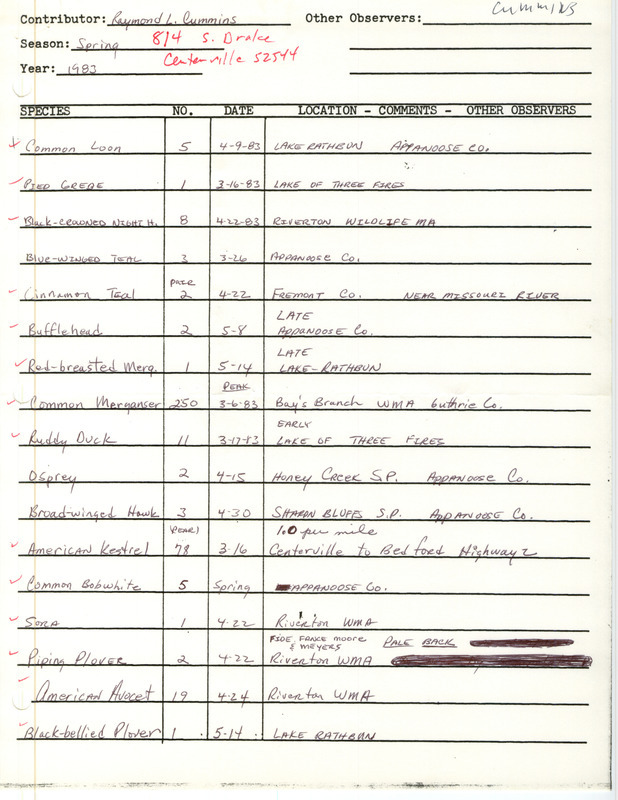 Cummins
Contributor: Raymond L. Cummins Other Observers:
Season: Spring 814 S. Drake
Centerville 52544
Year: 1983
SPECIES NO. DATE LOCATION - COMMENTS - OTHER OBSERVERS
Common Loon 5 4-9-83 LAKE RATHBUN APPANOOSE CO.
PIED GREBE 1 3-16-83 LAKE OF THREE FIRES
Black-CROWNED NIGHT H. 8 4-22-83 RIVERTON WILDLIFE MA
Blue-WINGED TEAL 3 3-26 APPANOOSE Co.
PAIR
Cinnamon Teal 2 4-22 FREMONT Co. NEAR MISSOURI RIVER
LATE
Bufflehead 2 5-8 APPANOOSE Co.
LATE
Red-breasted Merg. 1 5-14 LAKE-RATHBUN
PEAK
Common Merganser 250 3-6-83 Bay's Branch WMA Guthrie Co.
EARLY
Ruddy Duck 11 3-17-83 LAKE OF THREE FIRES
Osprey 2 4-15 Honey CREEK S.P. APPANOOSE Co.
Broad-winged Hawk 3 4-30 SHARON BLUFFS S.P. APPANOOSE Co.
1.0 per mile
American Kestrel 78 3-16 Centerville to Bedford Highway 2
Common Bobwhite 5 Spring APPANOOSE Co.
SORA 1 4-22 Riverton WMA
FIDE, moore PALE BACK
& MEYERS
Piping Plover 2 4-22 Riverton WMA
American Avocet 19 4-24 Riverton WMA
Black-bellied Plover 1 5-14 LAKE RATHBUN